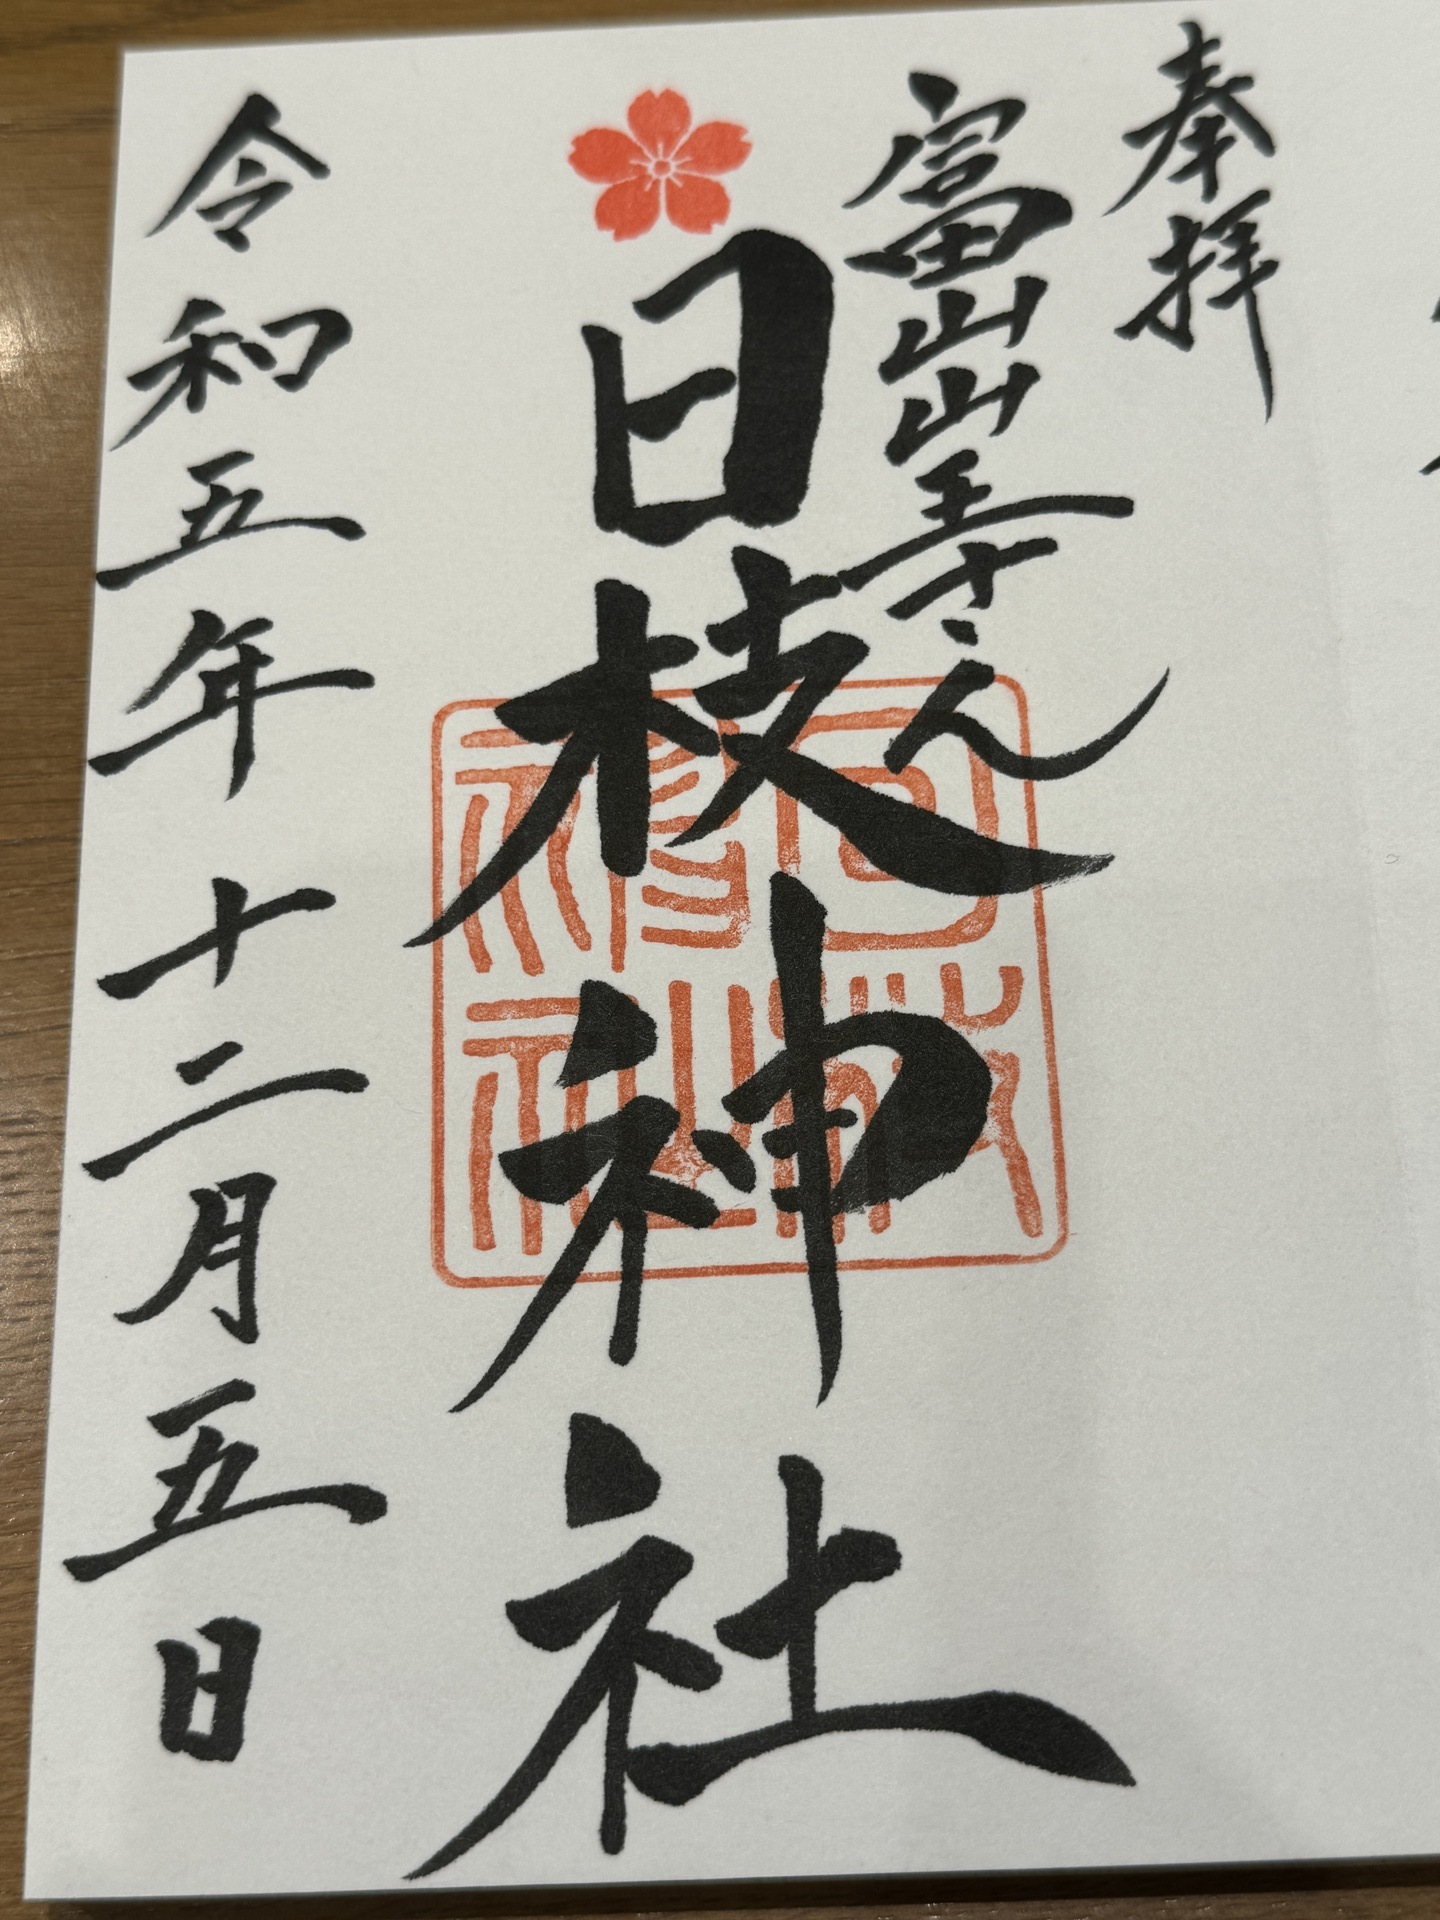 奉拝
富山山王さん
日枝神社
令和五年十二月五日